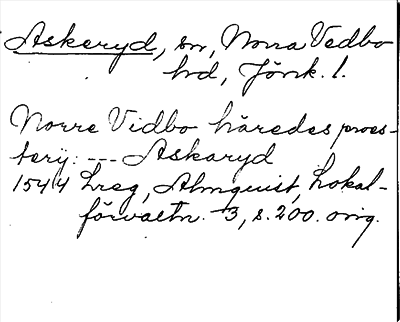 Askeryd, sn, Norra Vedbo
hd, Jönk. l.
Norre Vidbo häredes proes-
terij: --- Askaryd
1544 Lreg, Almquist, Lokal-
förvaltn. 3, s. 200. orig.